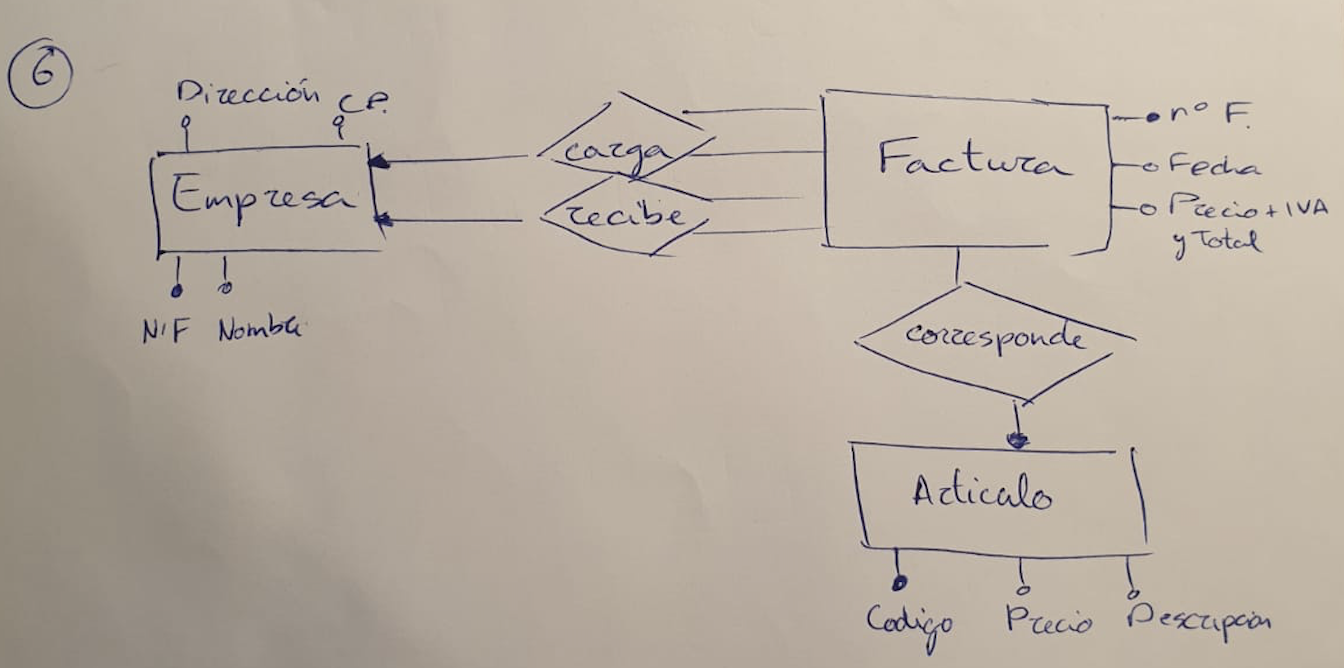 6
Dirección C.P.
Empresa
NIF Nombre
carga
recibe
Factura
nº F.
Fecha
Precio + IVA
y Total
corresponde
Articulo
Codigo Precio Descripción